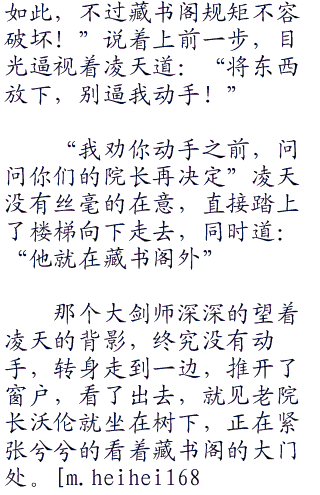 如此，不过藏书阁规矩不容
破坏！”说着上前一步，目
光逼视着凌天道：“将东西
放下，别逼我动手！”
“我劝你动手之前，问
问你们的院长再决定”凌天
没有丝毫的在意，直接踏上
了楼梯向下走去，同时道：
“他就在藏书阁外”
那个大剑师深深的望着
凌天的背影，终究没有动
手，转身走到一边，推开了
窗户，看了出去，就见老院
长沃伦就坐在树下，正在紧
张兮兮的看着藏书阁的大门
处。[m.heihei168